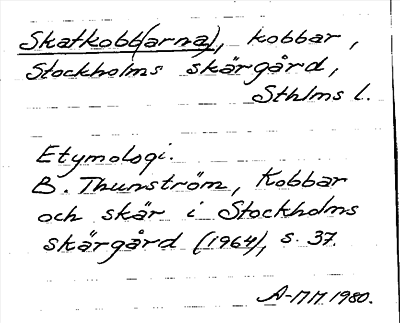 Skatkobb(arna), kobbar,
Stockholms skärgård,
Sthlms l.
Etymologi.
B. Thunström, Kobbar
och skär i Stockholms
skärgård (1964), s. 37.
A-MM 1980.